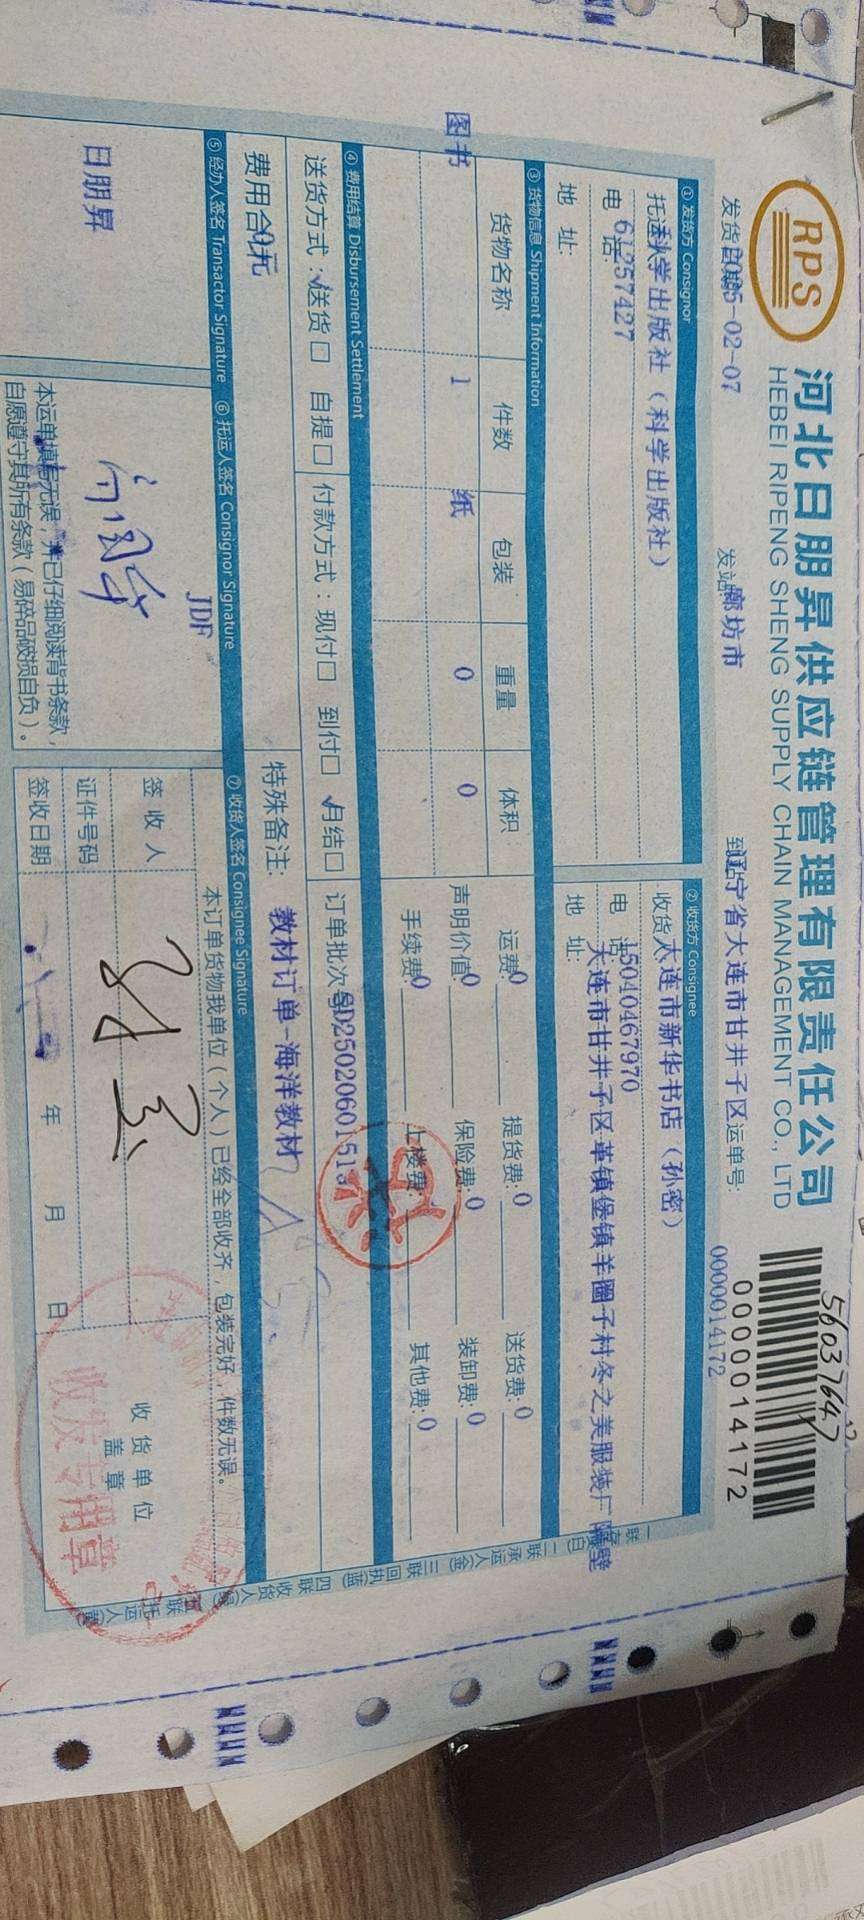 RPS
河北日朋昇供应链管理有限责任公司
HEBEI RIPENG SHENG SUPPLY CHAIN MANAGEMENT CO., LTD
56037647
0000014172
发货日期2025-02-07 发站廊坊市 到站辽宁省大连市甘井子区 运单号: 0000014172
① 发货方 Consignor
托运 科学出版社（科学出版社）
电话 61257427
地址:
② 收货方 Consignee
收货人 大连市新华书店（孙密）
电话 15040467970
地址: 大连市甘井子区革镇堡镇羊圈子村冬之美服装厂隔壁
③ 货物信息 Shipment Information
货物名称 件数 包装 重量 体积
图书 1 纸 0 0
运费0 提货费:0 送货费:0
声明价值0 保险费:0 装卸费:0
手续费0 上楼费: 其他费:0
④ 费用结算 Disbursement Settlement
送货方式:√送货□ 自提□ 付款方式:现付□ 到付□ √月结□ 订单批次号
费用合 0元 特殊备注: 教材订单-海洋教材
⑤ 经办人签名 Transactor Signature
日朋昇
⑥ 托运人签名 Consignor Signature
JDF
本运单填写无误,并已仔细阅读背书条款,
自愿遵守其所有条款(易碎品破损自负)。
⑦ 收货人签名 Consignee Signature
本订单货物我单位(个人)已经全部收齐,包装完好,件数无误。
签收人
证件号码
签收日期 年 月 日
收货单位
盖章
收发专用章